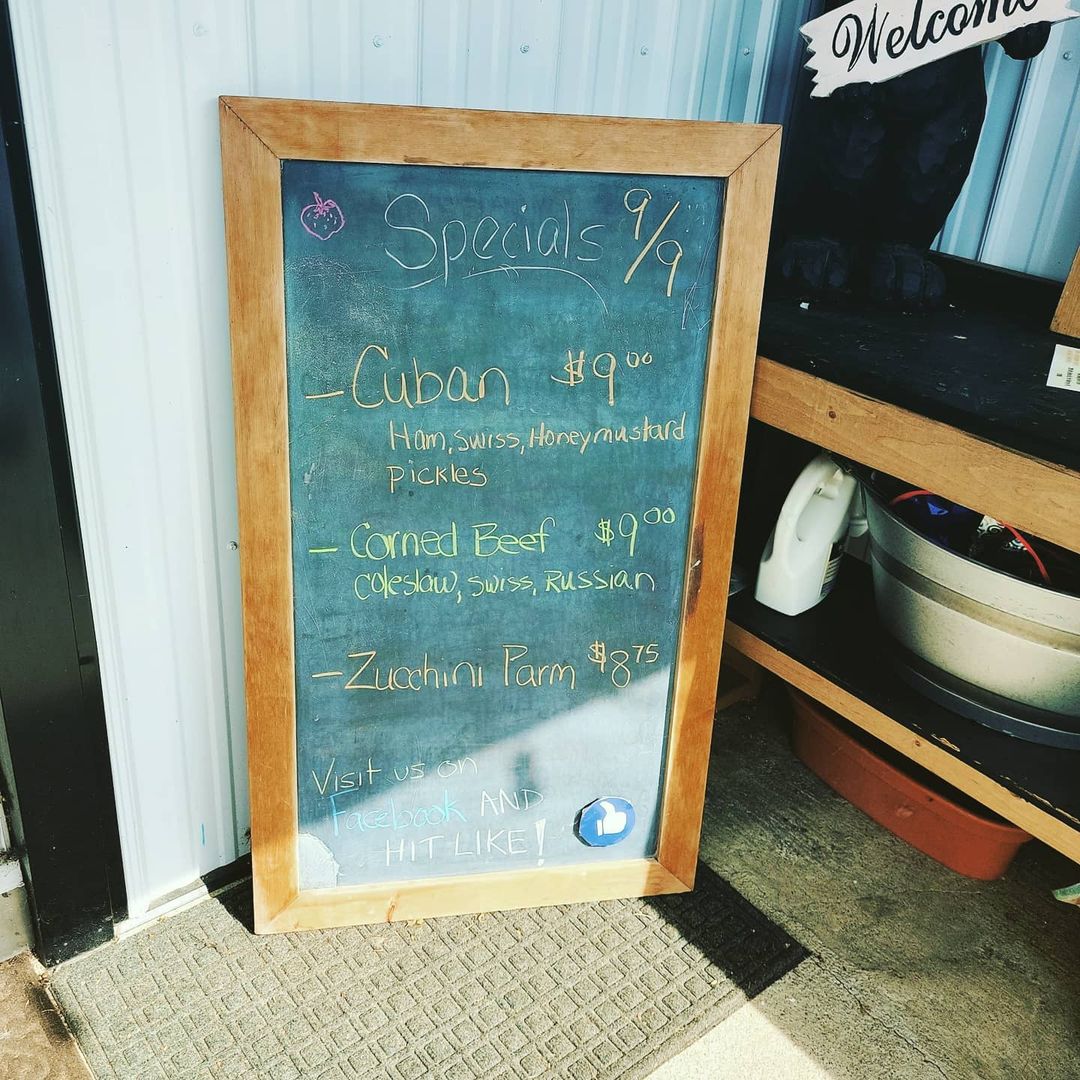 Welcome
Specials 9/9
- Cuban $9.00
Ham, Swiss, Honey mustard
pickles
- Corned Beef $9.00
coleslaw, swiss, Russian
- Zucchini Parm $8.75
Visit us on
Facebook AND
HIT LIKE!